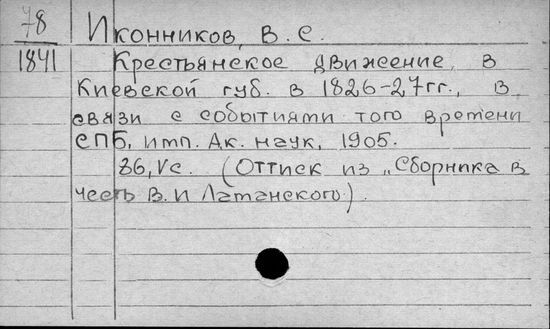 78 Иконников, В. С.
1841 Крестьянское движение в
Киевской губ. в 1826-27гг., в
связи с событиями того времени
СПБ, имп. Ак. наук, 1905.
86, Vс. (Оттиск из „Сборника в
честь В. И Ламанского).